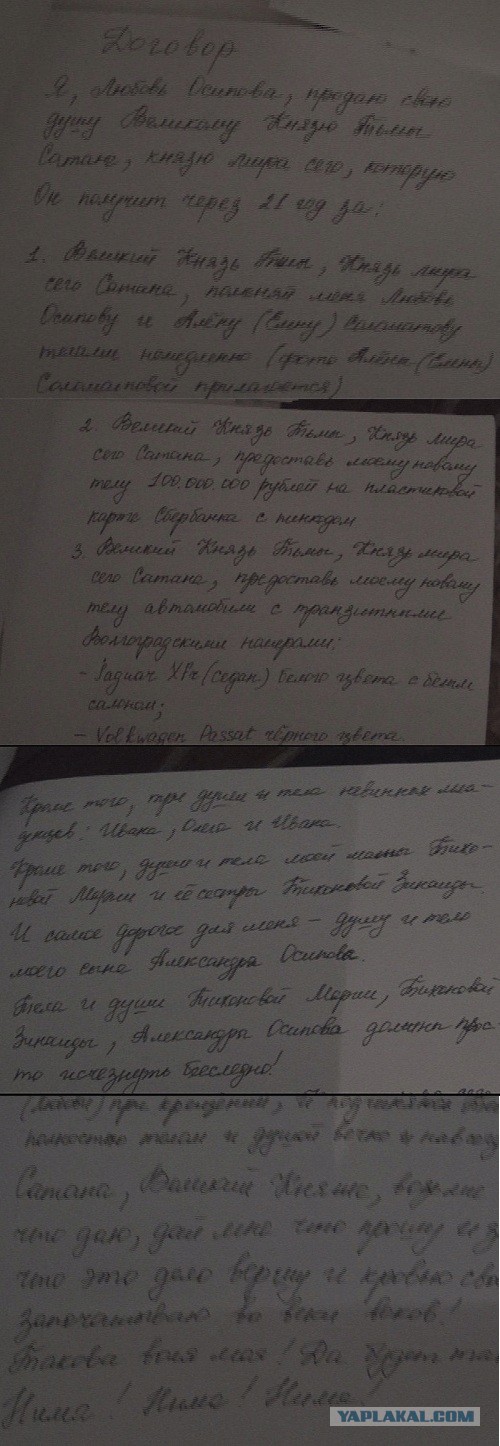 Договор
Я, Любовь Осипова, продаю свою
душу Великому Князю Тьмы
Сатане, князю мира сего, которую
Он получит через 21 год за:
1. Великий Князь Тьмы, Князь мира
сего Сатана, поменяй меня Любовь
Осипову и Алёну (Елену) Соломатову
телами немедленно (фото Алёны (Елены)
Соломатовой прилагается)
2. Великий Князь Тьмы, Князь мира
сего Сатана, предоставь моему новому
телу 100.000.000 рублей на пластиковой
карте Сбербанка с пинкодом
3. Великий Князь Тьмы, Князь мира
сего Сатана, предоставь моему новому
телу автомобили с транзитными
Волгоградскими номерами:
- Ягуар XFr (седан) белого цвета с белым
салоном;
- Volkwagen Passat чёрного цвета.
Кроме того, три души и тела невинных мла-
денцев: Ивана, Олега и Ивана.
Кроме того, души и тела моей мамы Тихо-
новой Марии и её сестры Тихоновой Зинаиды.
И самое дорогое для меня - душу и тело
моего сына Александра Осипова.
Тела и души Тихоновой Марии, Тихоновой
Зинаиды, Александра Осипова должны прос-
то исчезнуть бесследно!
(Любовь) при крещении, и подчиняюсь
полностью телом и душой вечно и навсегда
Сатана, Великий Княже, возьми
что даю, дай мне что прошу и з
что это дело вершу и кровью сво
запечатываю во веки веков!
Такова воля моя! Да будет так
Нима! Нима! Нима!
YAPLAKAL.COM